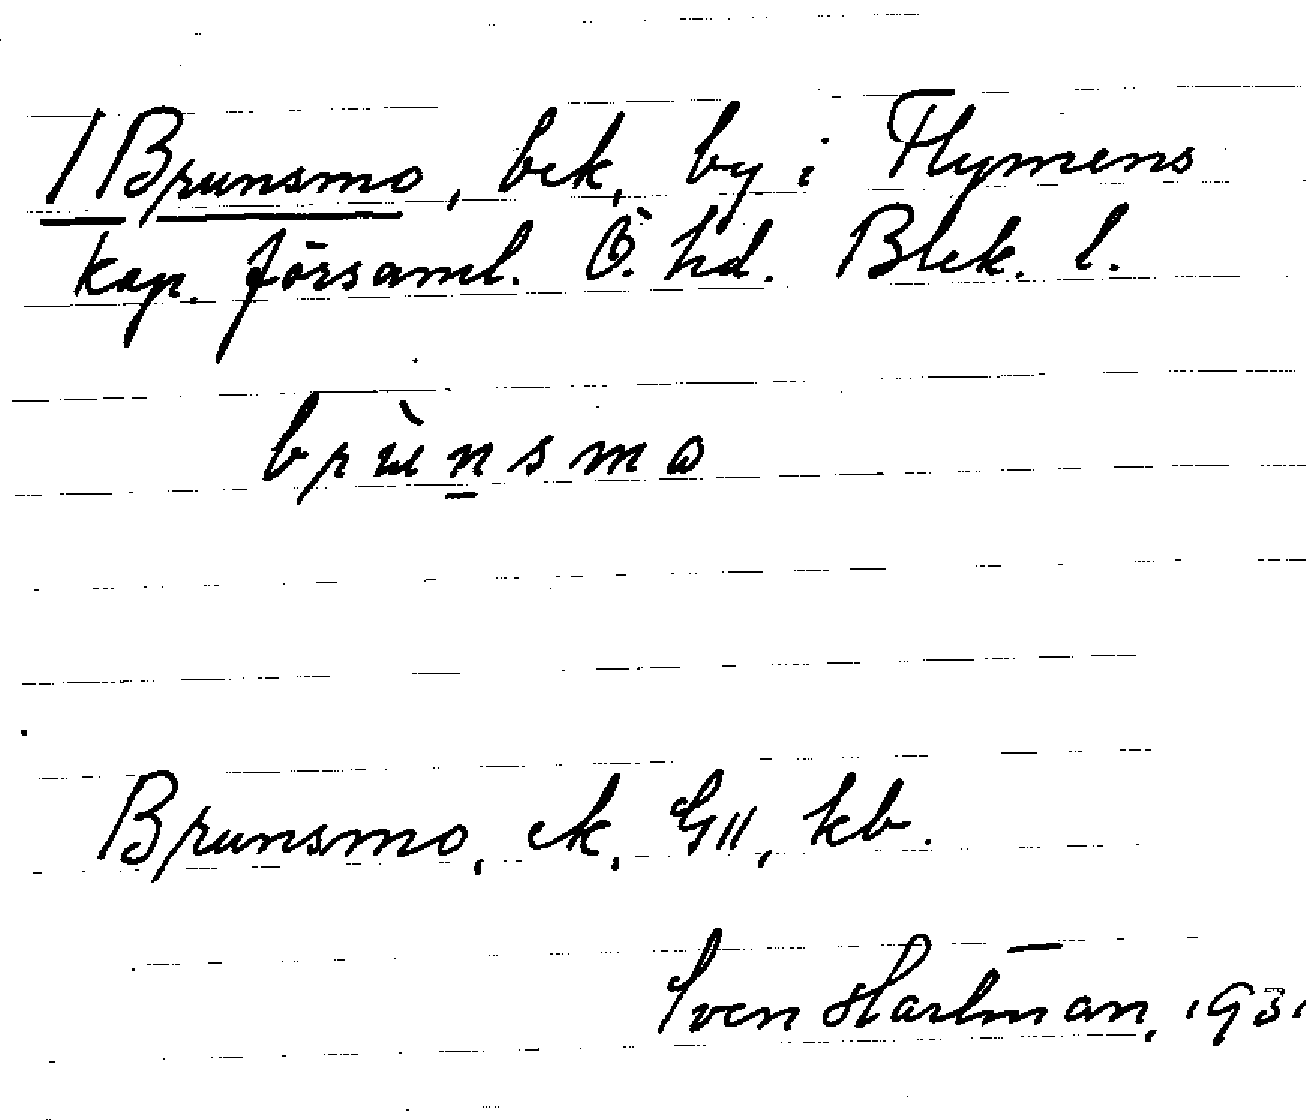 1 Brunsmo, bek, by i Flymens
kap. församl. Ö. hd. Blek. l.
brùnsmo
Brunsmo, ek, GII, kb.
Sven Hartman, 1931